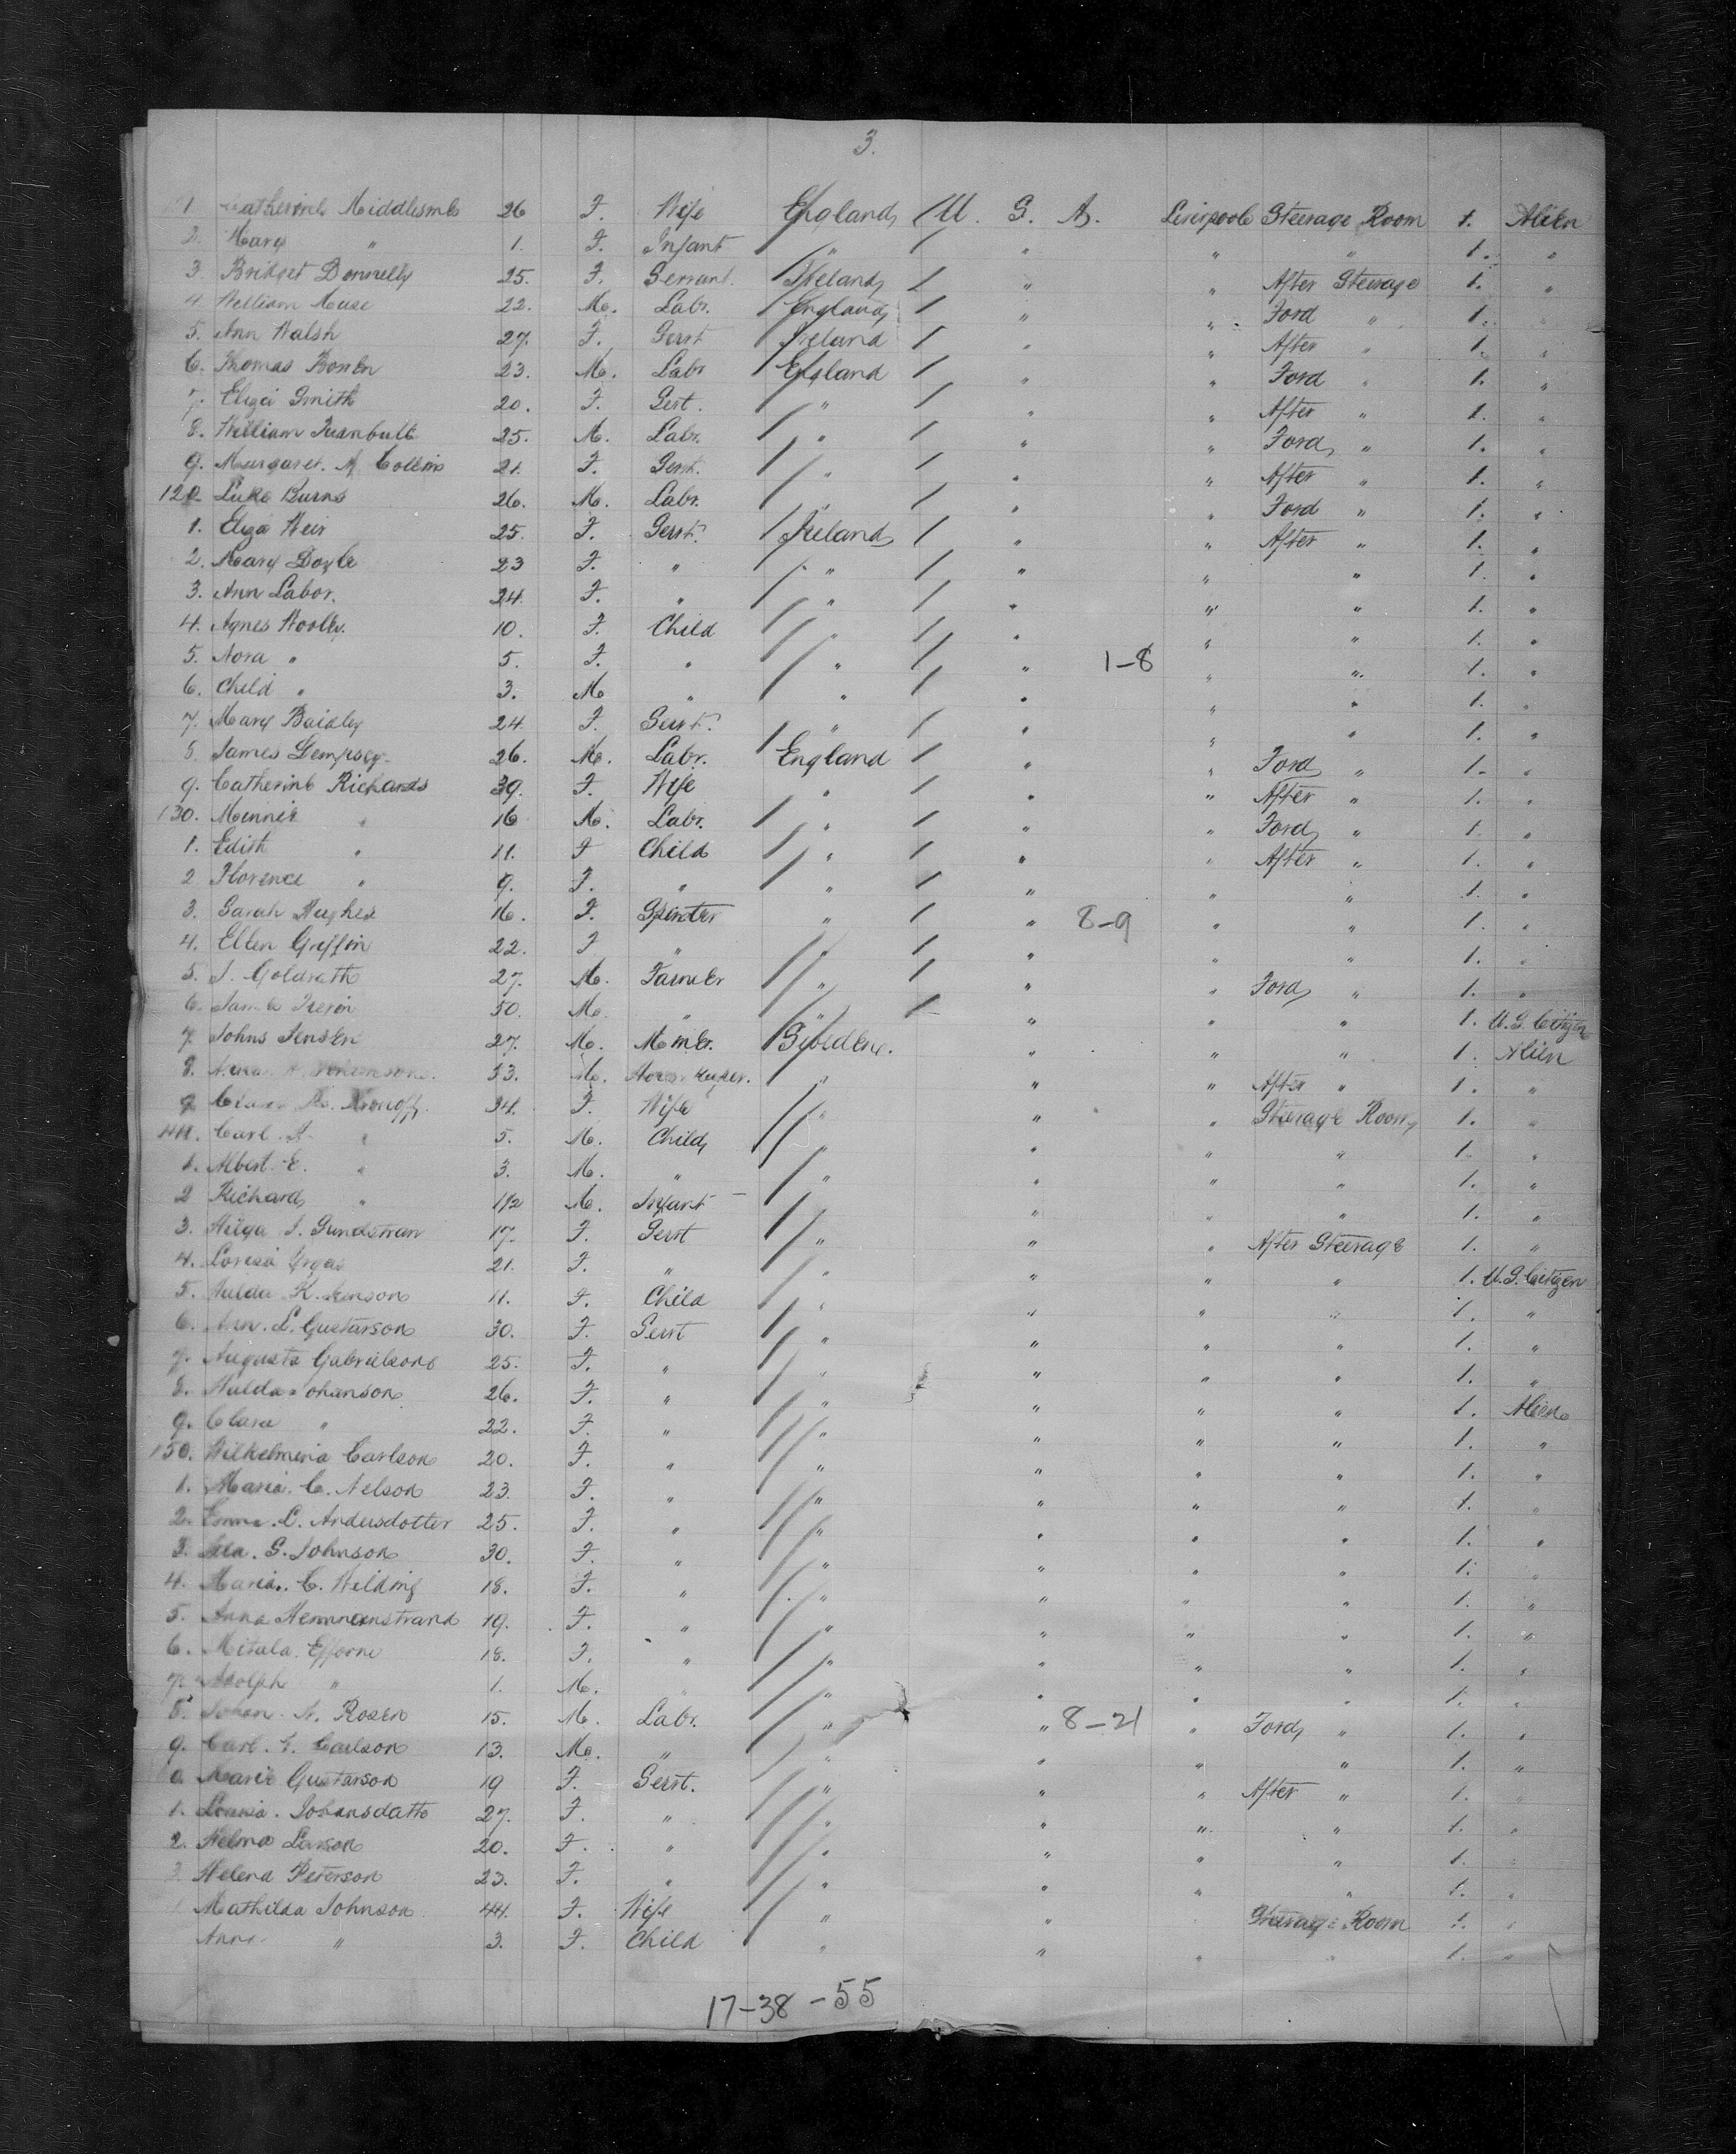 3.
1 Catherine Middlesmb 26 F. Wife England U. S. A. Liverpool Steerage Room 1. Alien
2. Mary " 1. F. Infant " " " " 1. "
3. Bridget Donnelly 25. F. Servant. Ireland " " After Steerage 1. "
4. William Muse 22. M. Labr. England " " Ford " 1. "
5. Ann Walsh 27. F. Servt Ireland " " After " 1. "
6. Thomas Bowen 23. M. Labr England " " Ford " 1. "
7. Eliza Smith 20. F. Sert. " " " After " 1. "
8. William Turnbull 25. M. Labr. " " " Ford " 1. "
9. Margaret. M. Collins 21. F. Servt. " " " After " 1. "
120 Luke Burns 26. M. Labr. " " " Ford " 1. "
1. Eliza Weir 25. F. Servt. Ireland " " After " 1. "
2. Mary Doyle 23 F. " " " " " 1. "
3. Ann Labor. 24. F. " " " " " 1. "
4. Agnes Wooller. 10. F. Child " " " " 1. "
5. Nora " 5. F. " " " 1-8 " " 1. "
6. Child " 3. M " " " " " 1. "
7. Mary Baidley 24. F. Servt. " " " " 1. "
8. James Dempsey. 26. M. Labr. England " " Ford " 1. "
9. Catherine Richards 39. F. Wife " " " After " 1. "
130. Minnie " 16 M. Labr. " " " Ford " 1. "
1. Edith " 11. F Child " " " After " 1. "
2 Florence " 9. F. " " " " " 1. "
3. Sarah Hughes 16. F. Spinster " " 8-9 " " 1. "
4. Ellen Griffin 22. F " " " " " 1. "
5. J. Goldrath 27. M. Farmer " " " Ford " 1. "
6. 50. M. " " " " " 1. U.S. Citizen
7. Johns Jensen 27. M. Miner. Sweden. " " " 1. Alien
8. 33. M. " " " After " 1. "
9 34. F. Wife " " " Steerage Room 1. "
Carl. A. " 5. M. Child " " " " 1. "
1. Albert. E. " 3. M. " " " " " 1. "
2 Richard " 1/2 M. Infant " " " " 1. "
3. Hilga J. Sundstran 17. F. Servt " " " After Steerage 1. "
4. Lovisa 21. F. " " " " " 1. U.S. Citizen
5. Hulda K. 11. F. Child " " " " 1. "
6. Ann. L. Gustarson 30. F. Servt " " " " 1. "
7. Augusta Gabrielson 25. F. " " " " " 1. "
8. Hulda Johanson 26. F. " " " " " 1. Alien
9. Clara " 22. F. " " " " " 1. "
150. Wilhelmina Carlson 20. F. " " " " " 1. "
1. Maria. C. Nelson 23. F. " " " " " 1. "
2. Emma. C. Andersdotter 25. F. " " " " " 1. "
3. S. Johnson 30. F. " " " " " 1. "
4. Maria. C. Welding 18. F. " " " " " 1. "
5. Anna Hemmenstrand 19. F. " " " " " 1. "
6. Mitala 18. F. " " " " " 1. "
7. Adolph " 1. M. " " " " 1. "
8. Johan. A. Rosen 15. M. Labr. " " 8-21 " Ford " 1. "
9. Carl. G. Carlson 13. M. " " " " " 1. "
0. Marie Gustarson 19 F. Servt. " " " After " 1. "
1. Johansdatto 27. F. " " " " " 1. "
2. Helma Larson 20. F. " " " " " 1. "
3. Helena Peterson 23. F. " " " " " 1. "
Mathilda Johnson 44. F. Wife " " Steerage Room 1. "
Anna " 3. F. Child " " " " 1. "
17-38-55